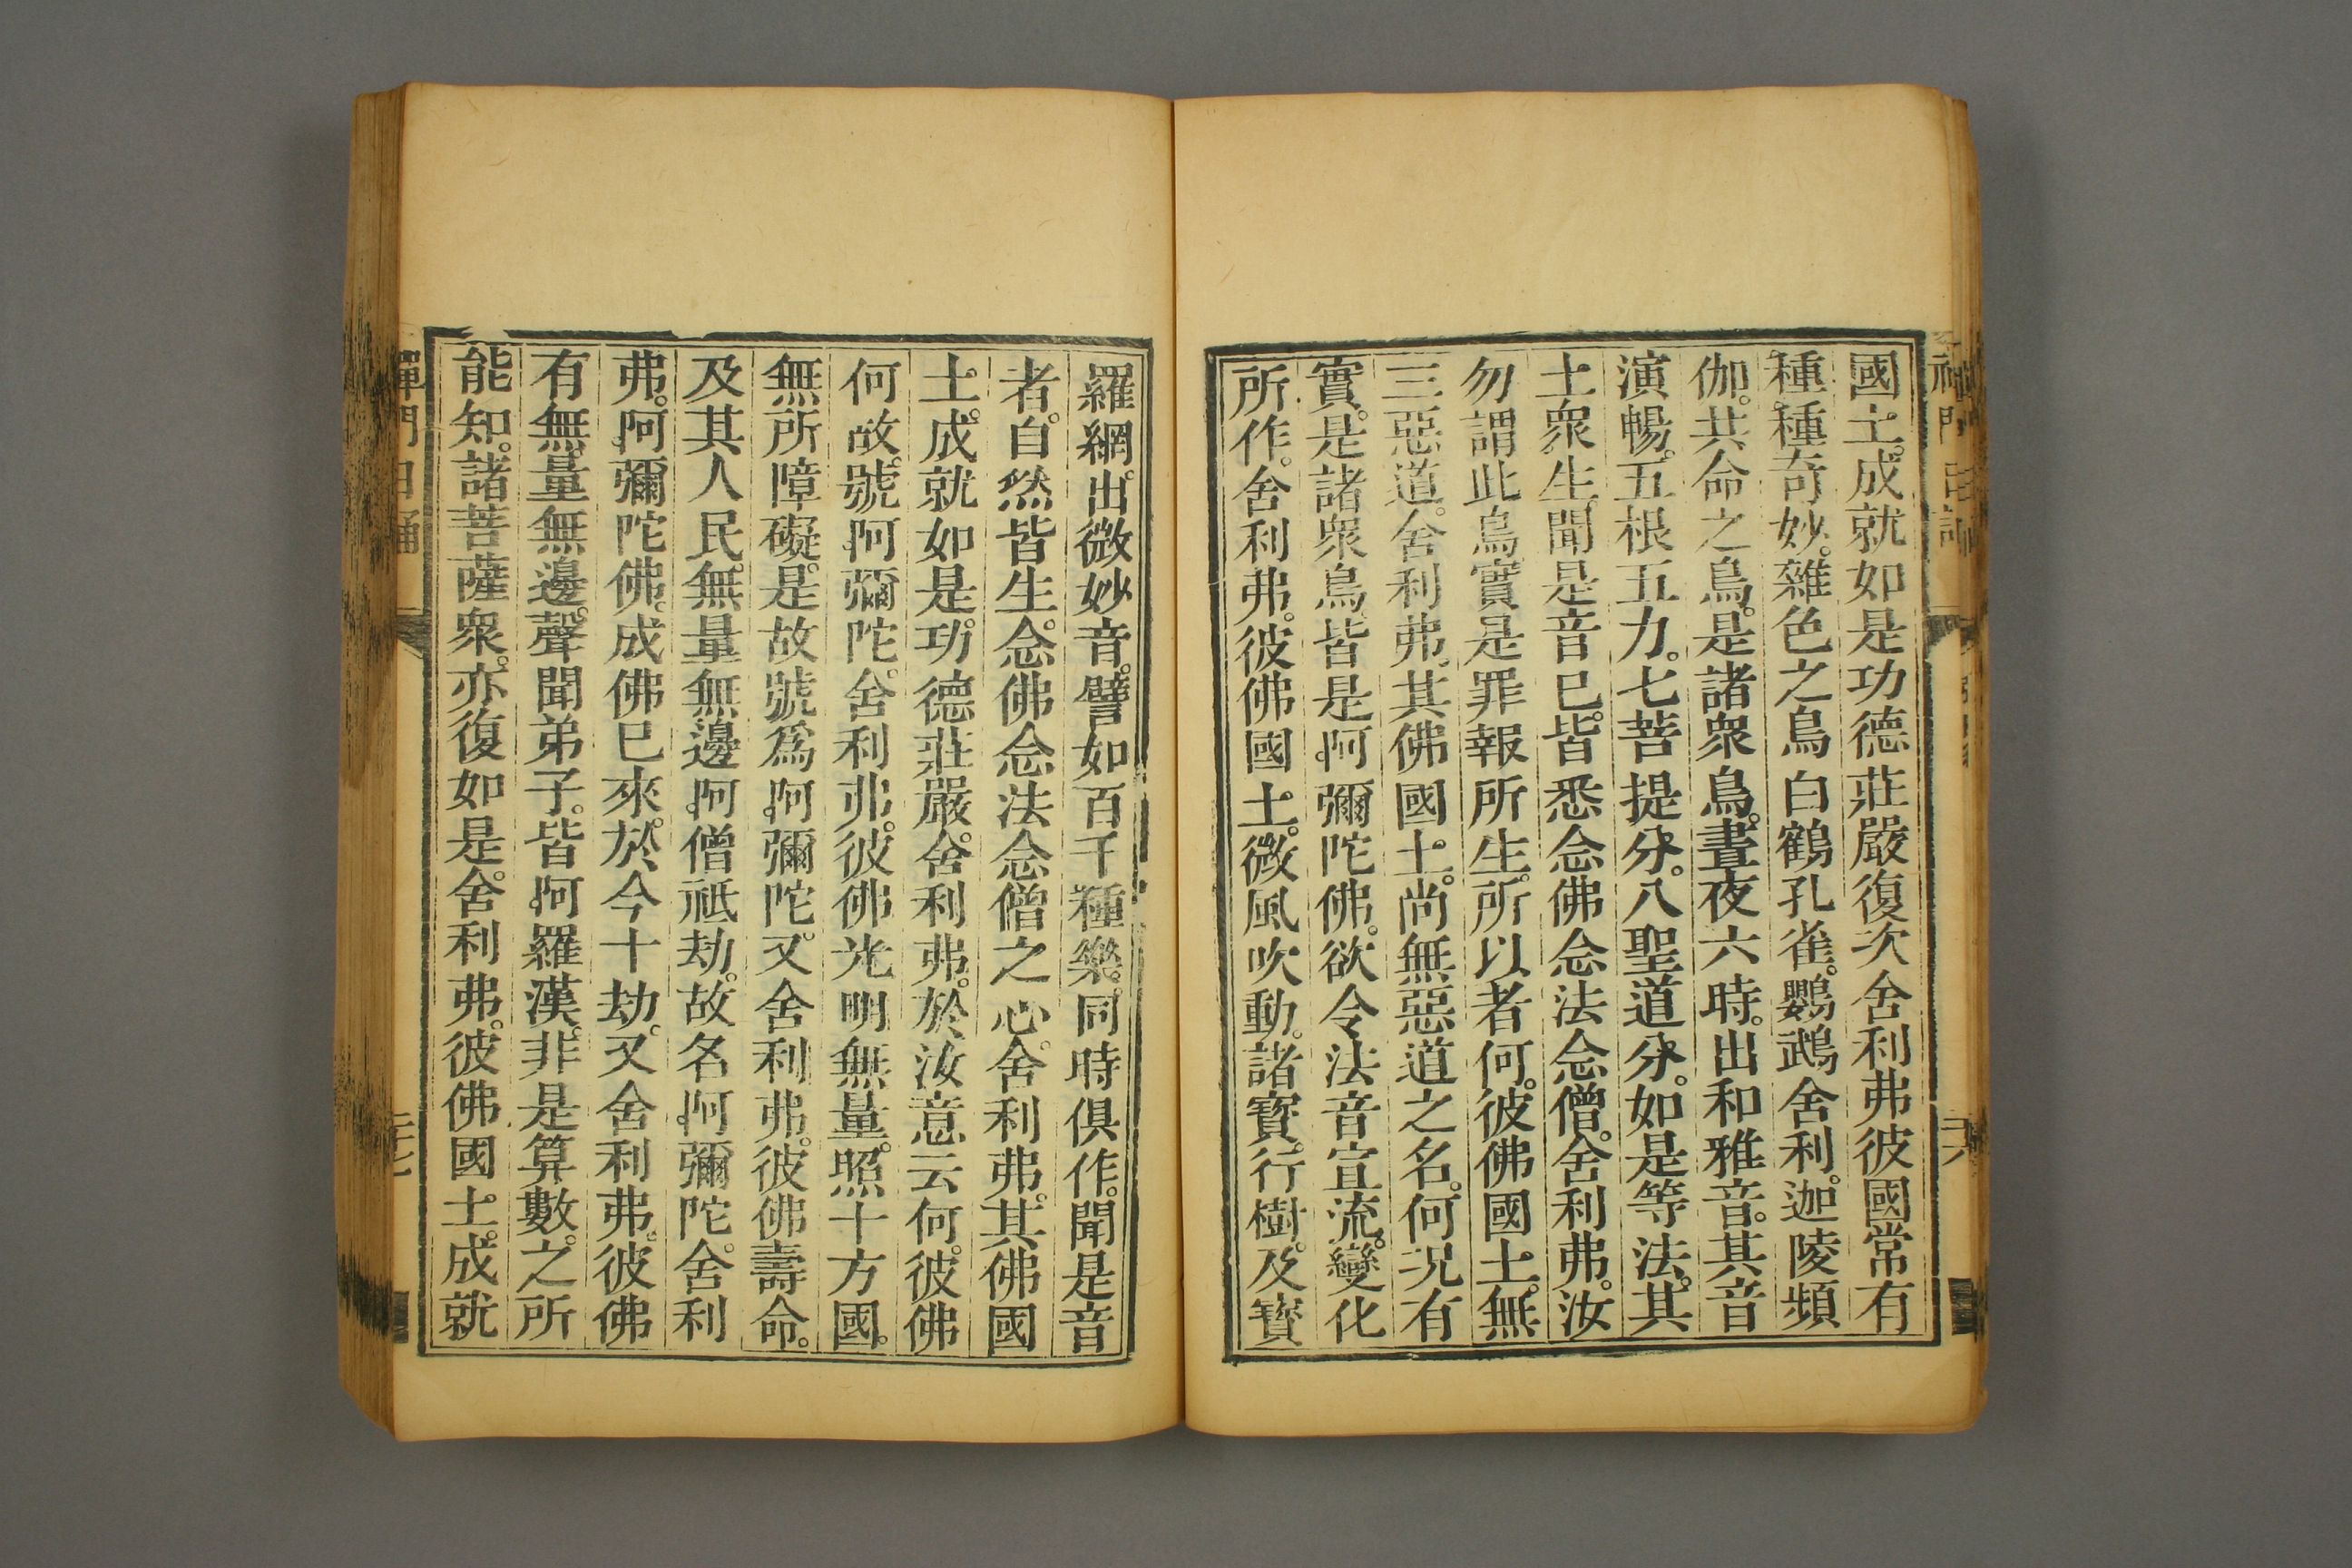 國土。成就如是功德莊嚴復次舍利弗彼國常有
種。種奇妙。雜色之鳥白鶴孔雀。鸚鵡舍利。迦陵頻
伽。共命之鳥。是諸衆鳥。晝夜六時。出和雅音。其音
演暢。五根五力。七菩提分。八聖道分。如是等法。其
土衆生。聞是音已。皆悉念佛念法念僧。舍利弗。汝
勿謂此鳥實是罪報所生。所以者何。彼佛國土。無
三惡道。舍利弗。其佛國土。尚無惡道之名。何況有
實。是諸衆鳥。皆是阿彌陀佛。欲令法音宣流。變化
所作。舍利弗。彼佛國土。微風吹動。諸寶。行樹。及寶
羅網。出微妙音。譬如百千種樂。同時俱作。聞是音
者。自然皆生。念佛念法念僧之心。舍利弗。其佛國
土。成就如是。功德莊嚴。舍利弗。於汝意云何。彼佛
何故。號阿彌陀。舍利弗。彼佛光明無量。照十方國。
無所障礙。是故號爲阿彌陀。又舍利弗。彼佛壽命。
及其人民。無量無邊阿僧祇劫。故名阿彌陀。舍利
弗。阿彌陀佛。成佛已來。於今十劫。又舍利弗。彼佛
有無量無邊。聲聞弟子。皆阿羅漢。非是算數。之所
能知。諸菩薩衆。亦復如是。舍利弗。彼佛國土。成就
禪門日誦
二十七